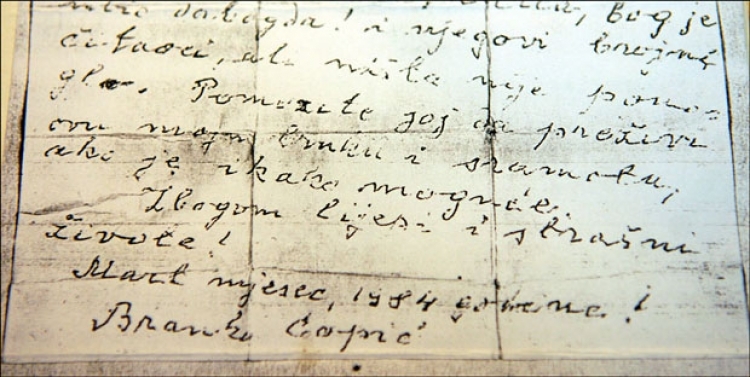 dabogda! i njegovi brojni
čitaoci, ali ništa nije pomo-
glo. Pomozite joj da preživi
ovu moju bruku i sramotu,
ako je ikako moguće.
Zbogom lijepi i strašni
živote!
Mart mjesec, 1984 godine!
Branko Ćopić